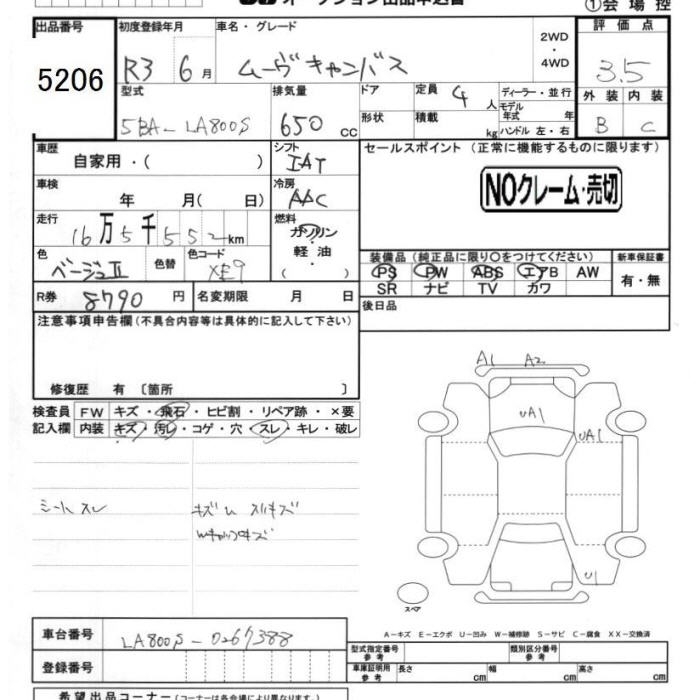 オークション出品申込書
①会場控
出品番号
5206
初度登録年月
R3 6月
車名・グレード
ムーヴキャンバス
2WD・4WD
評価点
3.5
外装 内装
B C
型式
5BA-LA800S
排気量
650 cc
ドア
定員 4人
形状
積載 kg
ディーラー・並行
モデル年式 年
ハンドル 左・右
車歴
自家用・( )
シフト
IAT
セールスポイント (正常に機能するものに限ります)
NOクレーム・売切
車検
年 月( 日)
冷房
AAC
走行
16万5千552km
燃料
ガソリン
軽油
( )
色
ベージュII
色替
色コード
XE9
装備品 (純正品に限り○をつけてください)
新車保証書
PS PW ABS エアB AW
SR ナビ TV カワ
有・無
R券 8790円
名変期限 月 日
後日品
注意事項申告欄(不具合内容等は具体的に記入して下さい)
修復歴 有〔箇所 〕
検査員記入欄
FW キズ・飛石・ヒビ割・リペア跡・×要
内装 キズ・汚レ・コゲ・穴・スレ・キレ・破レ
シートスレ
キズU スリキズ
Wキャップキズ
A1 A2
UA1
UA1
U1
スペア
A-キズ E-エクボ U-凹み W-補修跡 S-サビ C-腐食 XX-交換済
車台番号
LA800S-0267388
登録番号
型式指定番号 参考
類別区分番号 参考
車庫証明用 参考
長さ cm 幅 cm 高さ cm
希望出品コーナー(コーナーは各会場により異なります。)